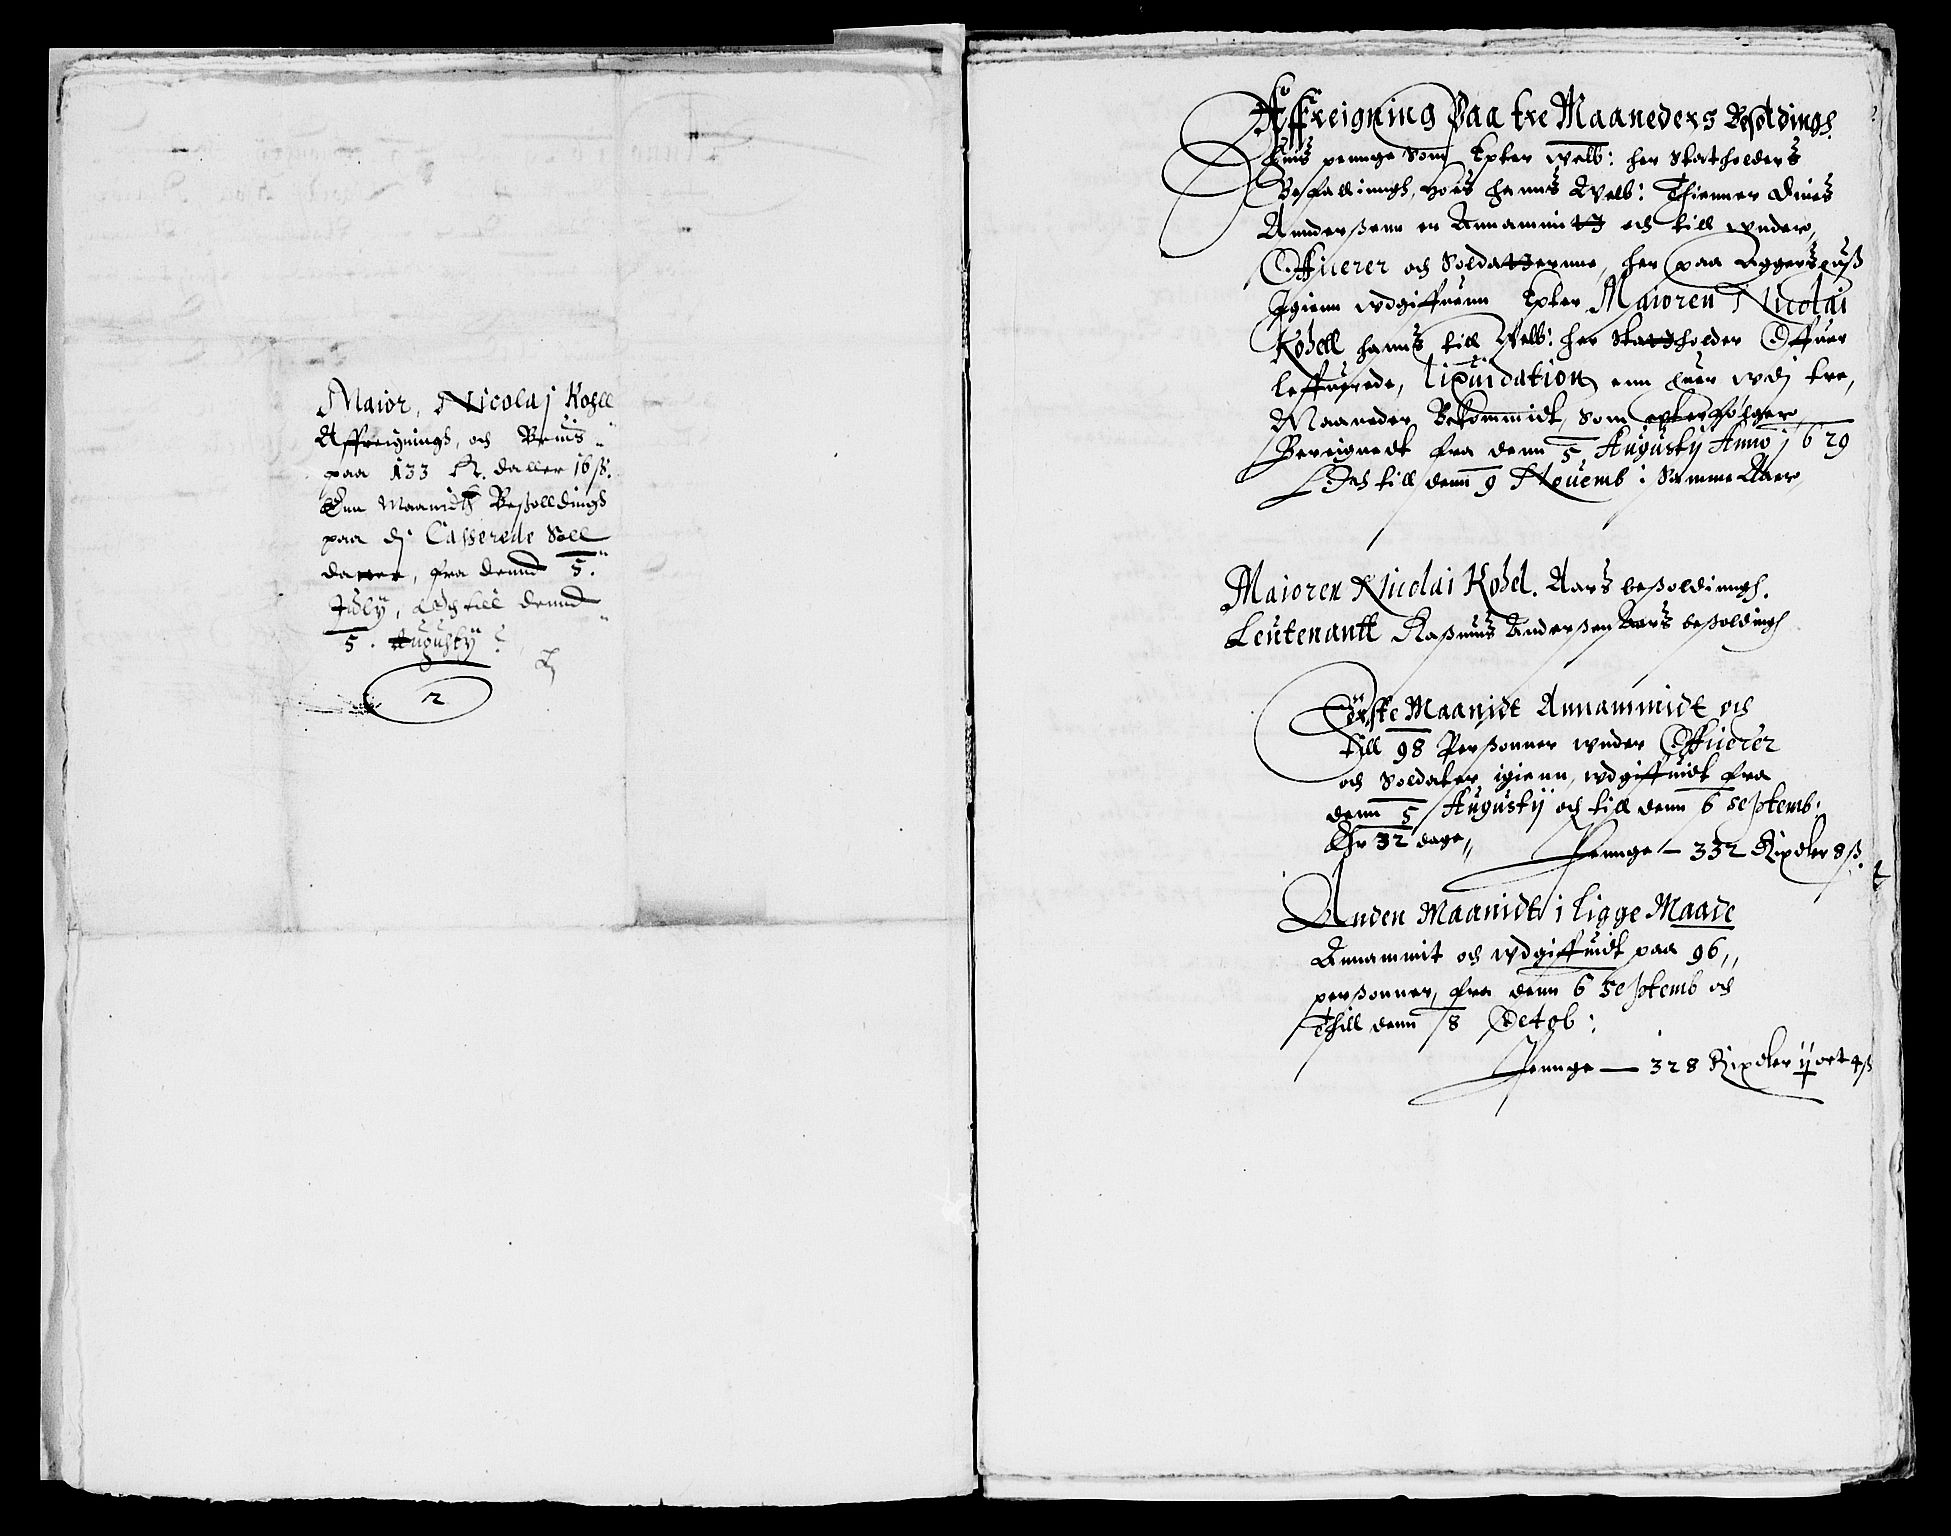 Maior, Nicolaj Kohll
Affreignings, och Beuis
paa 133 R. daller 16 ß.
Enn Maanidtz Beßolldings
paa dj Casserede Soll
datter, fra dennd 5.
July, och till dennd
5. Augustÿ
2
Affreigning Paa tre Maaneders Besoldingh
huis pennge som Epter welb: her Statholders
Befallinngh, hoes hanns Welb: Thienner Ohues
Anndersenn er Annammitt och till wnder,
Officerer och Soldatterne, her paa Aggershuß
Igienn wdgiffuenn Epter Maioren Nicolai
Kohell hanns till Welb: her Stattholder Offuer
leffuerede, liquidation, enn huer wdj tre,
Maaneder Bekommidt, som epterfølger,
Bereignedt fra denn 5 Augustÿ Anno 1629
Och till denn 9 Nouemb: Samme Aar
Maioren Nicolai Kohel. Aars beßoldinngh.
Leutenantt Raßmus Anderßen Aars beßoldingh
Første Maanidt Annammidt och
till 98 Perßonner wnder Officerer
och Soldater igienn, wdgiffuidt fra
denn 5 Augustÿ och till denn 6 Septemb:
Er 32 dage,,
Pennge — 332 Rixdler 8 ß.
Anden Maanidt i ligge Maade
Annammit och wdgiffuidt paa 96,,
perßonner, fra denn 6 Septemb och
Thill denn 8 Octob:
Pennge — 328 Rixdler ij ort 4 ß